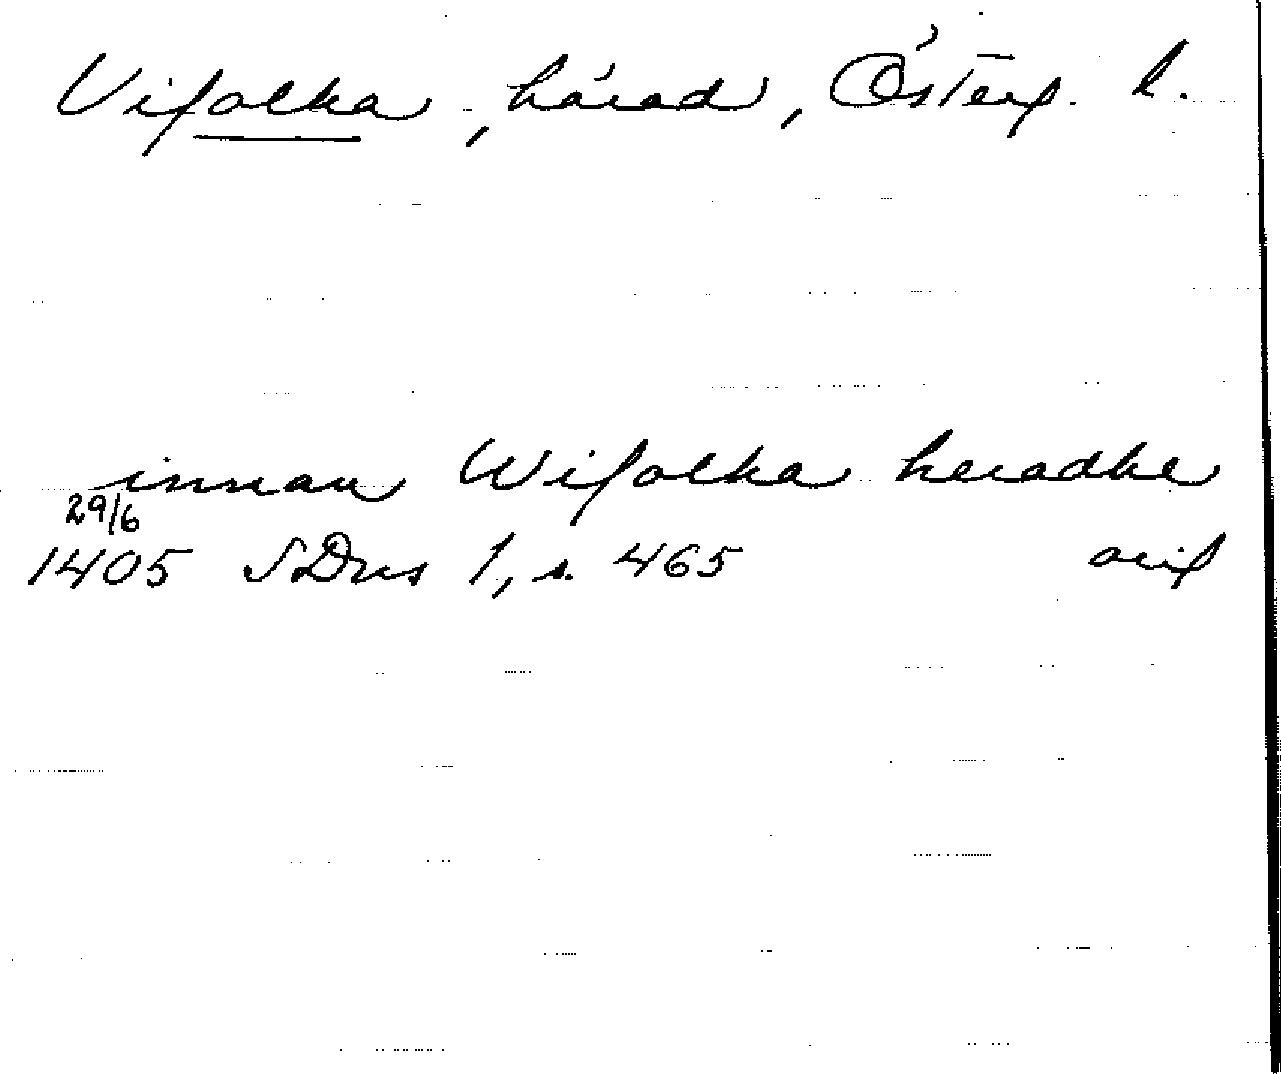 Vifolka, härad, Österg. l.
innan Wifolka heradhe
29/6
1405 SDns 1, s. 465 orig